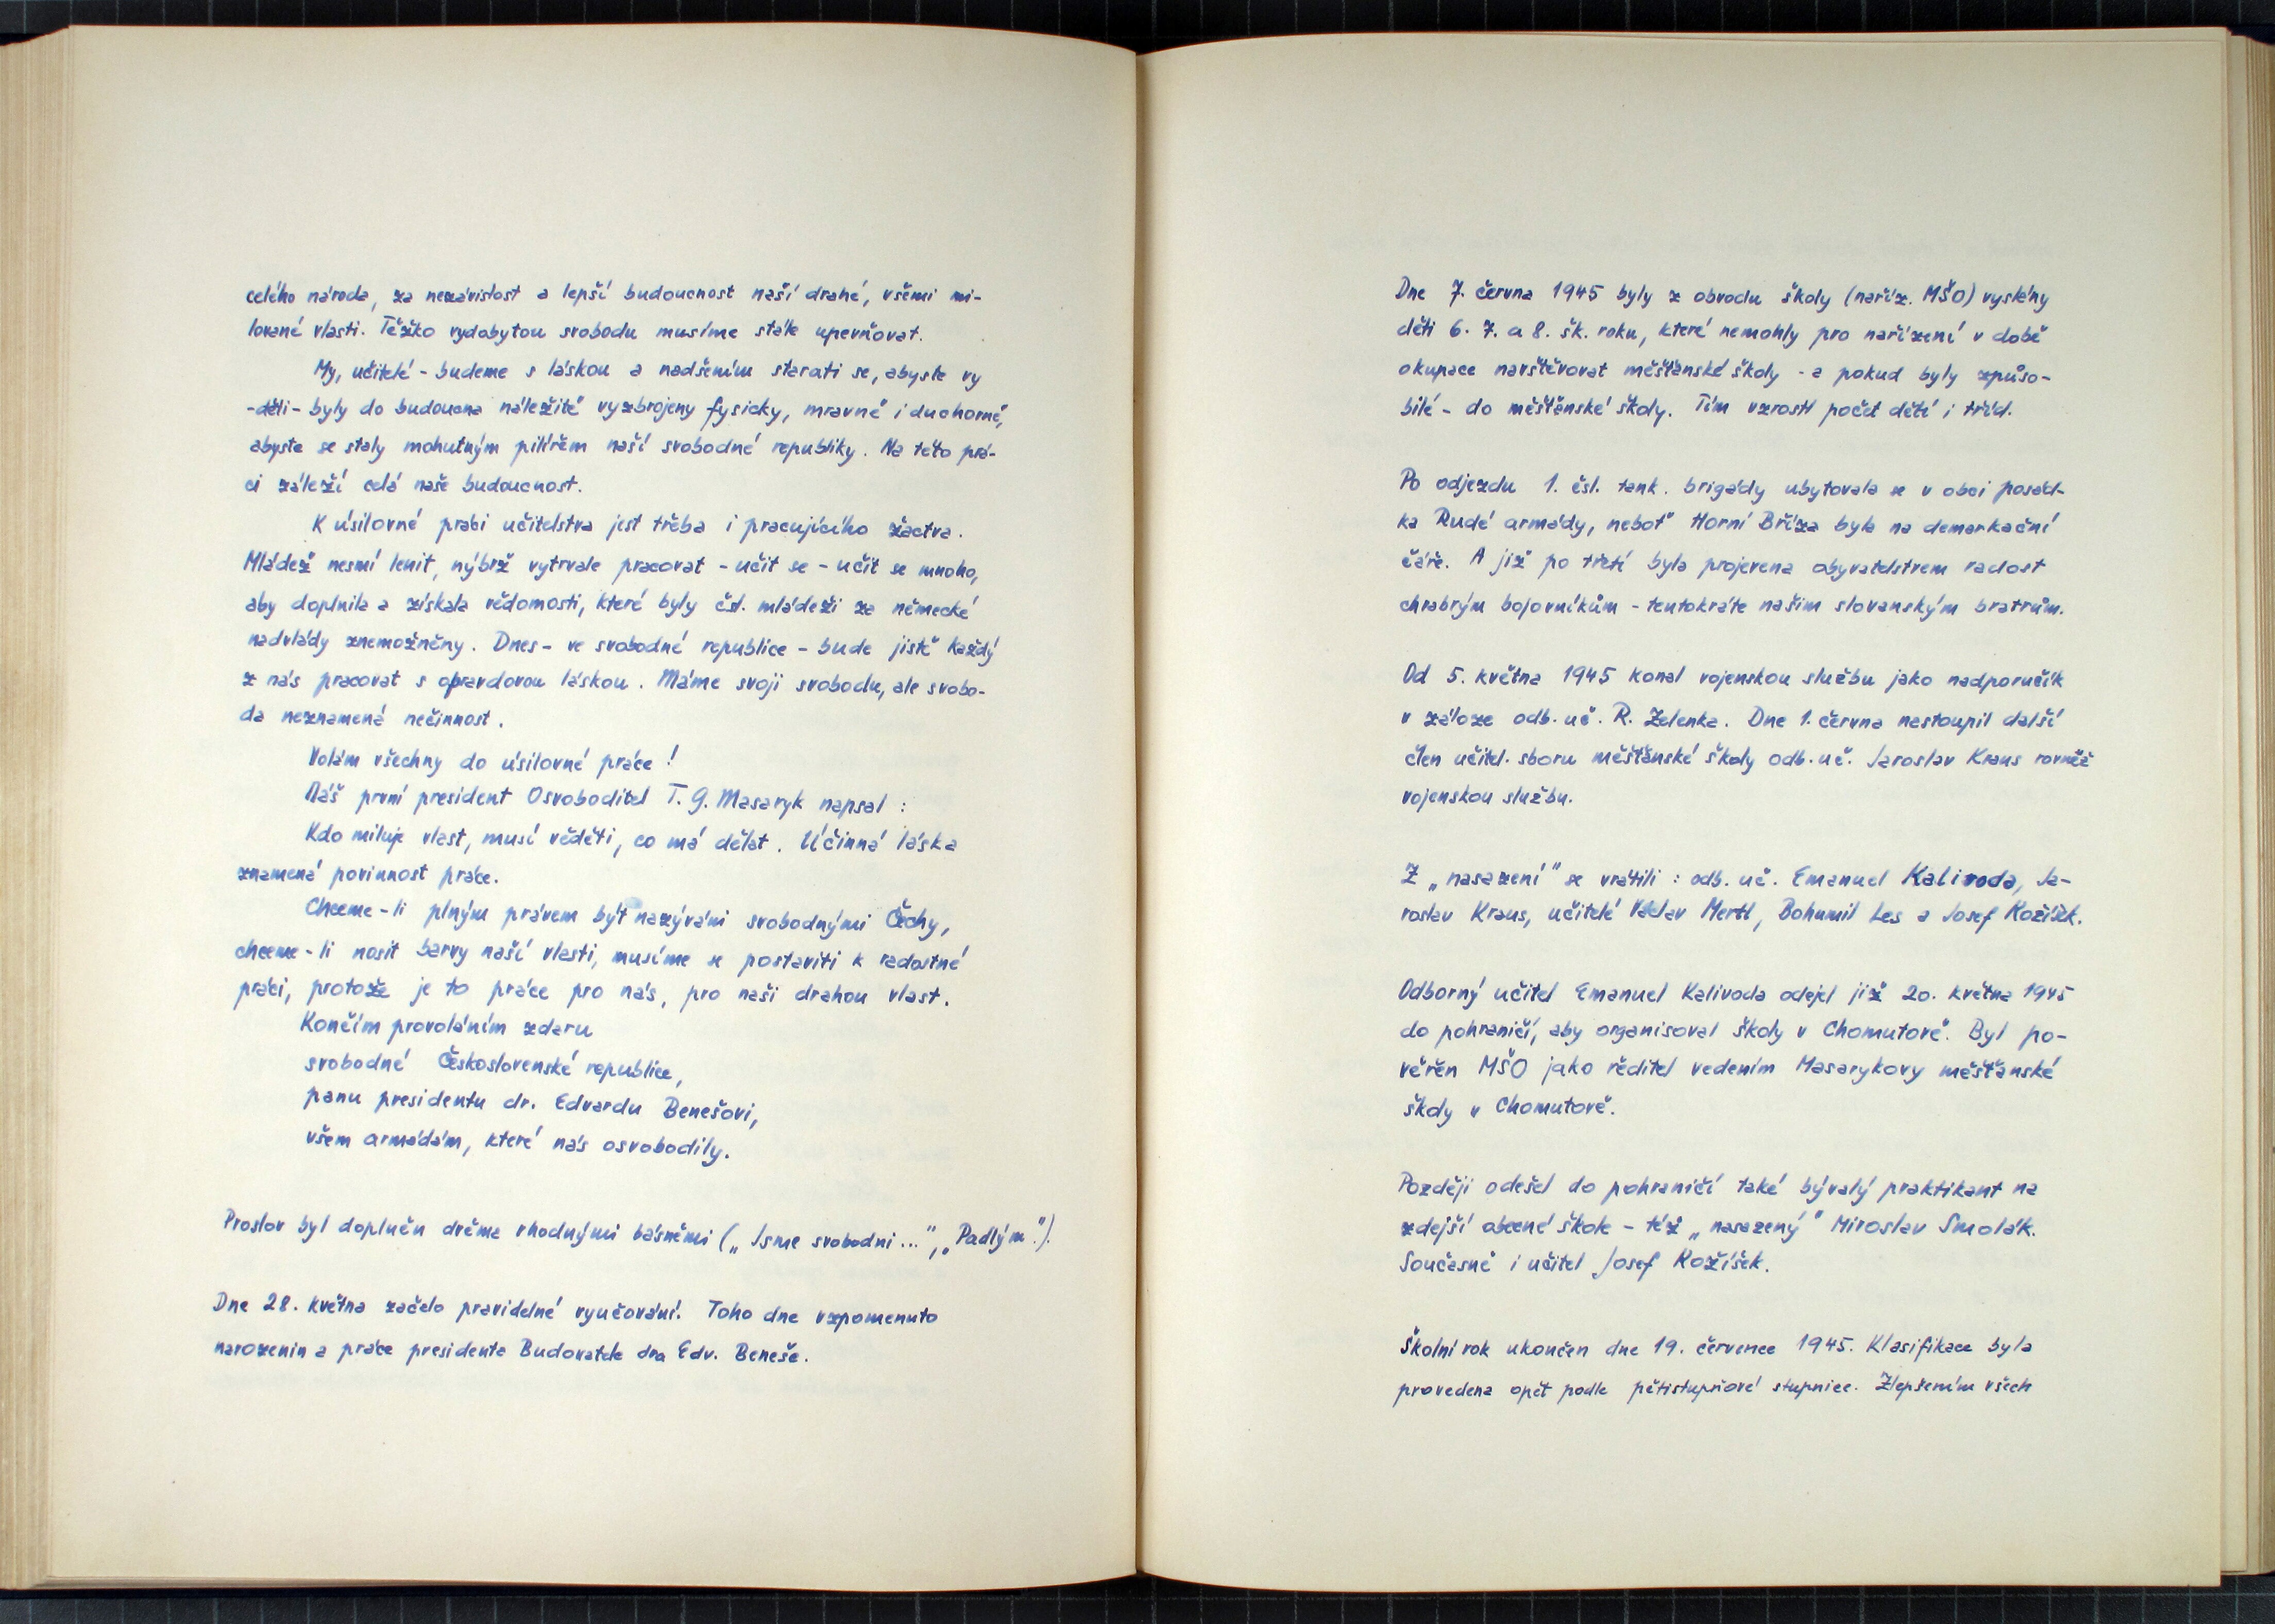 celého národa, za nezávislost a lepší budoucnost naší drahé, všemi mi-
lované vlasti. Těžko vydobytou svobodu musíme stále upevňovat.
My, učitelé - budeme s láskou a nadšením starati se, abyste vy
-děti- byly do budoucna náležitě vyzbrojeny fysicky, mravně i duchovně,
abyste se staly mohutným pilířem naší svobodné republiky. Na této prá-
ci záleží celá naše budoucnost.
K úsilovné práci učitelstva jest třeba i pracujícího žactva.
Mládež nesmí lenit, nýbrž vytrvale pracovat - učit se - učit se mnoho,
aby doplnila a získala vědomosti, které byly čsl. mládeži za německé
nadvlády znemožněny. Dnes - ve svobodné republice - bude jistě každý
z nás pracovat s opravdovou láskou. Máme svoji svobodu, ale svobo-
da neznamená nečinnost.
Volám všechny do úsilovné práce!
Náš první president Osvoboditel T. G. Masaryk napsal :
Kdo miluje vlast, musí věděti, co má dělat. Účinná láska
znamená povinnost práce.
Chceme-li plným právem být nazýváni svobodnými Čechy,
chceme-li nosit barvy naší vlasti, musíme se postaviti k radostné
práci, protože je to práce pro nás, pro naši drahou vlast.
Končím provoláním zdaru
svobodné Československé republice,
panu presidentu dr. Edvardu Benešovi,
všem armádám, které nás osvobodily.
Proslov byl doplněn dvěma vhodnými básněmi („Jsme svobodni...", „Padlým").
Dne 28. května začalo pravidelné vyučování. Toho dne vzpomenuto
narozenin a práce presidenta Budovatele dra Edv. Beneše.
Dne 7. června 1945 byly z obvodu školy (naříz. MŠO) vyslány
děti 6. 7. a 8. šk. roku, které nemohly pro nařízení v době
okupace navštěvovat měšťanské školy - a pokud byly způso-
bilé - do měšťanské školy. Tím vzrostl počet dětí i tříd.
Po odjezdu 1. čsl. tank. brigády ubytovala se v obci posád-
ka Rudé armády, neboť Horní Bříza byla na demarkační
čáře. A již po třetí byla projevena obyvatelstvem radost
chrabrým bojovníkům - tentokráte našim slovanským bratrům.
Od 5. května 1945 konal vojenskou službu jako nadporučík
v záloze odb. uč. R. Zelenka. Dne 1. června nastoupil další
člen učitel. sboru měšťanské školy odb. uč. Jaroslav Kraus rovněž
vojenskou službu.
Z „nasazení" se vrátili : odb. uč. Emanuel Kalivoda, Ja-
roslav Kraus, učitelé Václav Mertl, Bohumil Les a Josef Kožíšek.
Odborný učitel Emanuel Kalivoda odejel již 20. května 1945
do pohraničí, aby organisoval školy v Chomutově. Byl po-
věřen MŠO jako ředitel vedením Masarykovy měšťanské
školy v Chomutově.
Později odešel do pohraničí také bývalý praktikant na
zdejší obecné škole - též „nasazený" Miroslav Smolák.
Současně i učitel Josef Kožíšek.
Školní rok ukončen dne 19. července 1945. Klasifikace byla
provedena opět podle pětistupňové stupnice. Zlepšením všech